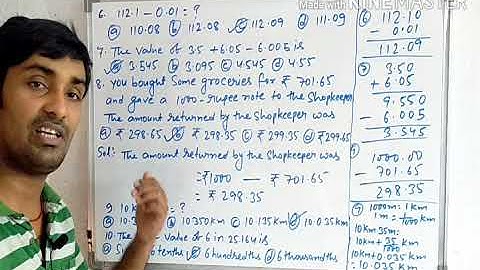 Made with KINEMASTER
6. 112.1 - 0.01 = ?
a 110.08 b 112.08 c 112.09 d 111.09
7. The value of 3.5 + 6.05 - 6.005 is
a 3.545 b 3.095 c 4.545 d 4.55
8. You bought Some groceries for ₹ 701.65
and gave a 1000-rupee note to the Shopkeeper
The amount returned by the Shopkeeper was
a ₹ 298.65 b ₹ 298.35 c ₹ 299.35 d ₹ 299.65
Sol: The amount returned by the Shopkeeper was
= ₹1000 - ₹ 701.65
= ₹ 298.35
9. 10 K = ?
a 10.3 b 10350 km c 10.135 km d 10.035 km
10. The value of 6 in 25.164 is
a Si tenths c 6 hundredths d 6 thousandths
6 112.10
- 0.01
112.09
7 3.50
+ 6.05
9.550
- 6.005
3.545
1000.00
- 701.65
298.35
9 1000m = 1 km
1m = 1/1000 km
10km 35m:
10km + 35/1000 km
10km + 0.035 km
= 10.035 km